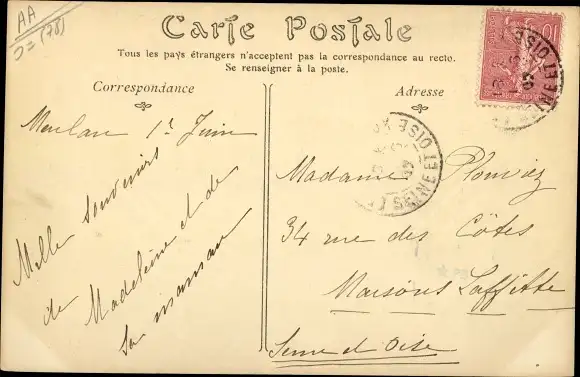 AA
Carte Postale
Tous les pays étrangers n'acceptent pas la correspondance au recto.
Se renseigner à la poste.
Correspondance
Meulan 1r Juin
Mille souvenirs
de Madeleine et de
sa maman
Adresse
10
SEINE ET OISE
SEINE ET OISE
Madame Plouviez
34 rue des Côtes
Maisons Laffitte
Seine et Oise